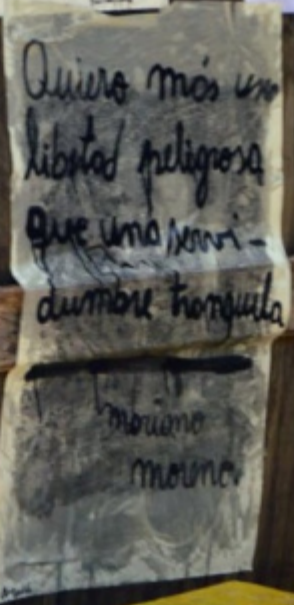 Quiero más una
libertad peligrosa
que una servi-
dumbre tranquila
mariano
moreno.